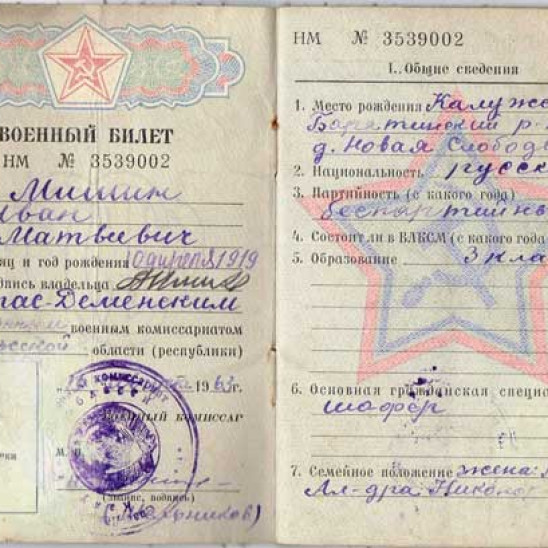 ВОЕННЫЙ БИЛЕТ
НМ № 3539002
Мишин
Иван
Матвеевич
яц и год рождения 1919
дпись владельца
ас-Деменским
военным комиссариатом
ской области (республики)
1963г.
ВОЕННЫЙ КОМИССАР
М. П.
(звание, подпись)
НМ № 3539002
1. Общие сведения
1. Место рождения Калуже
Барятинский р-
д. Новая Слобод
2. Национальность русск
3. Партийность (с какого года)
беспартийн
4. Состоял ли в ВЛКСМ (с какого года
5. Образование 3 кла
6. Основная гражданская специа
шофер
7. Семейное положение жена:
Ал-дра Никоно